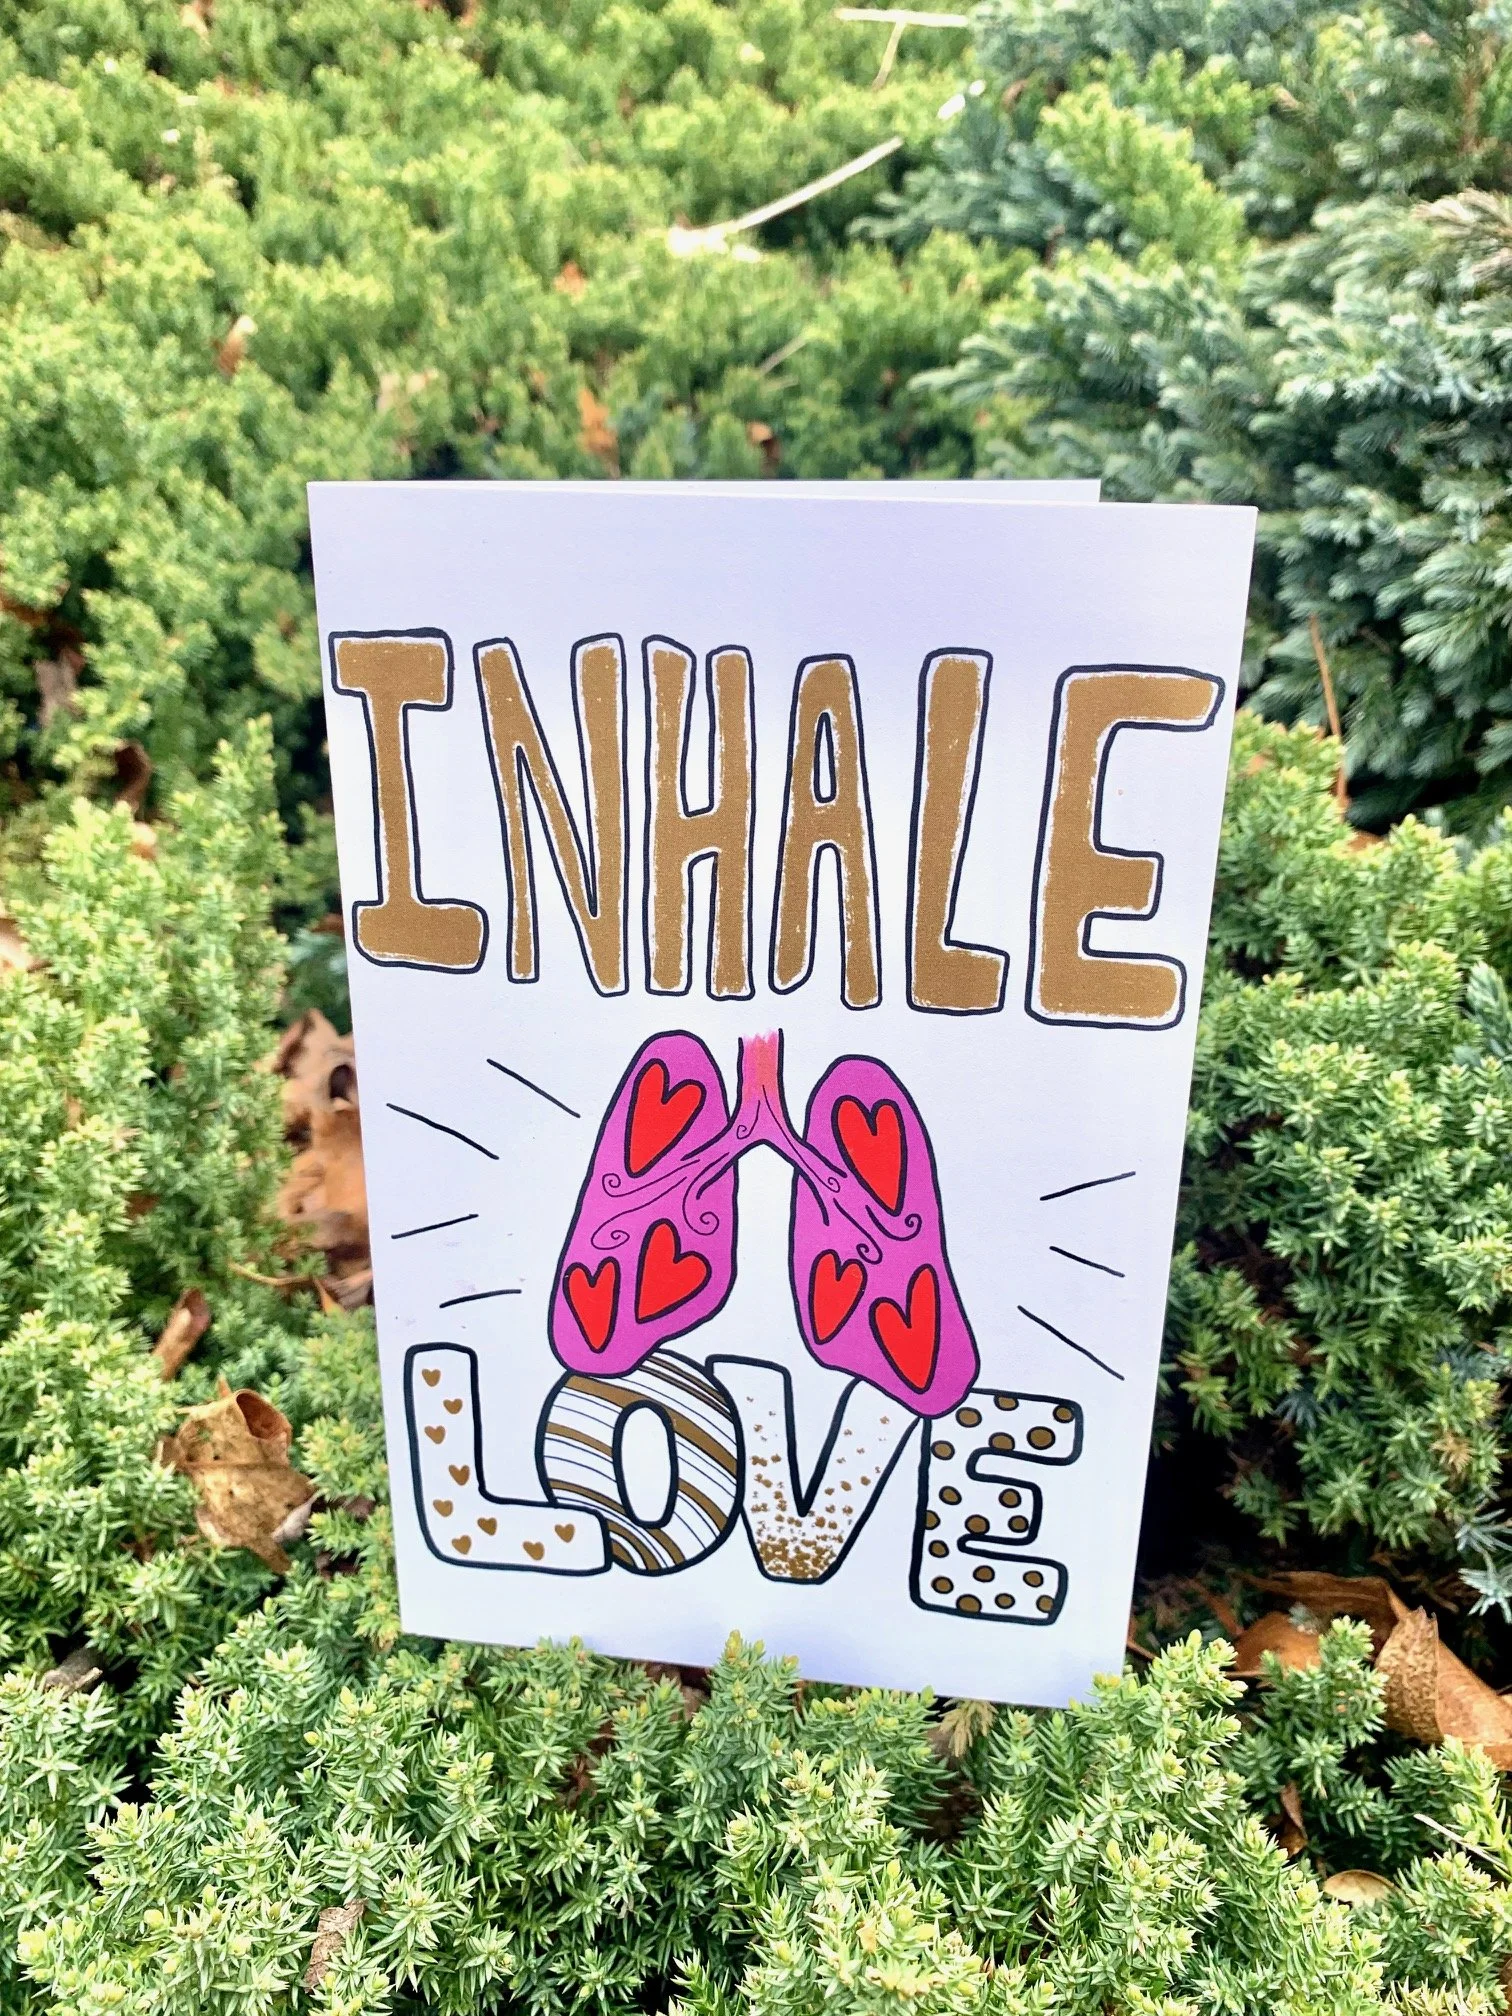 INHALE
LOVE